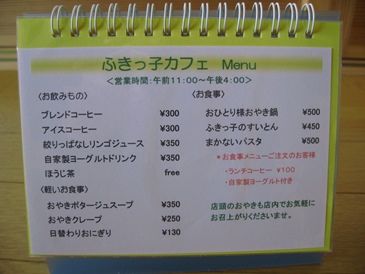 ふきっ子カフェ Menu
＜営業時間：午前11:00～午後4:00＞
〈お飲みもの〉
ブレンドコーヒー ¥300
アイスコーヒー ¥300
絞りっぱなしリンゴジュース ¥350
自家製ヨーグルトドリンク ¥350
ほうじ茶 free
〈軽いお食事〉
おやきポタージュスープ ¥350
おやきクレープ ¥250
日替わりおにぎり ¥130
〈お食事〉
おひとり様おやき鍋 ¥500
ふきっ子のすいとん ¥450
まかないパスタ ¥500
＊お食事メニューご注文のお客様
・ランチコーヒー ¥100
・自家製ヨーグルト付き
店頭のおやきも店内でお気軽に
お召上がりくださいませ。